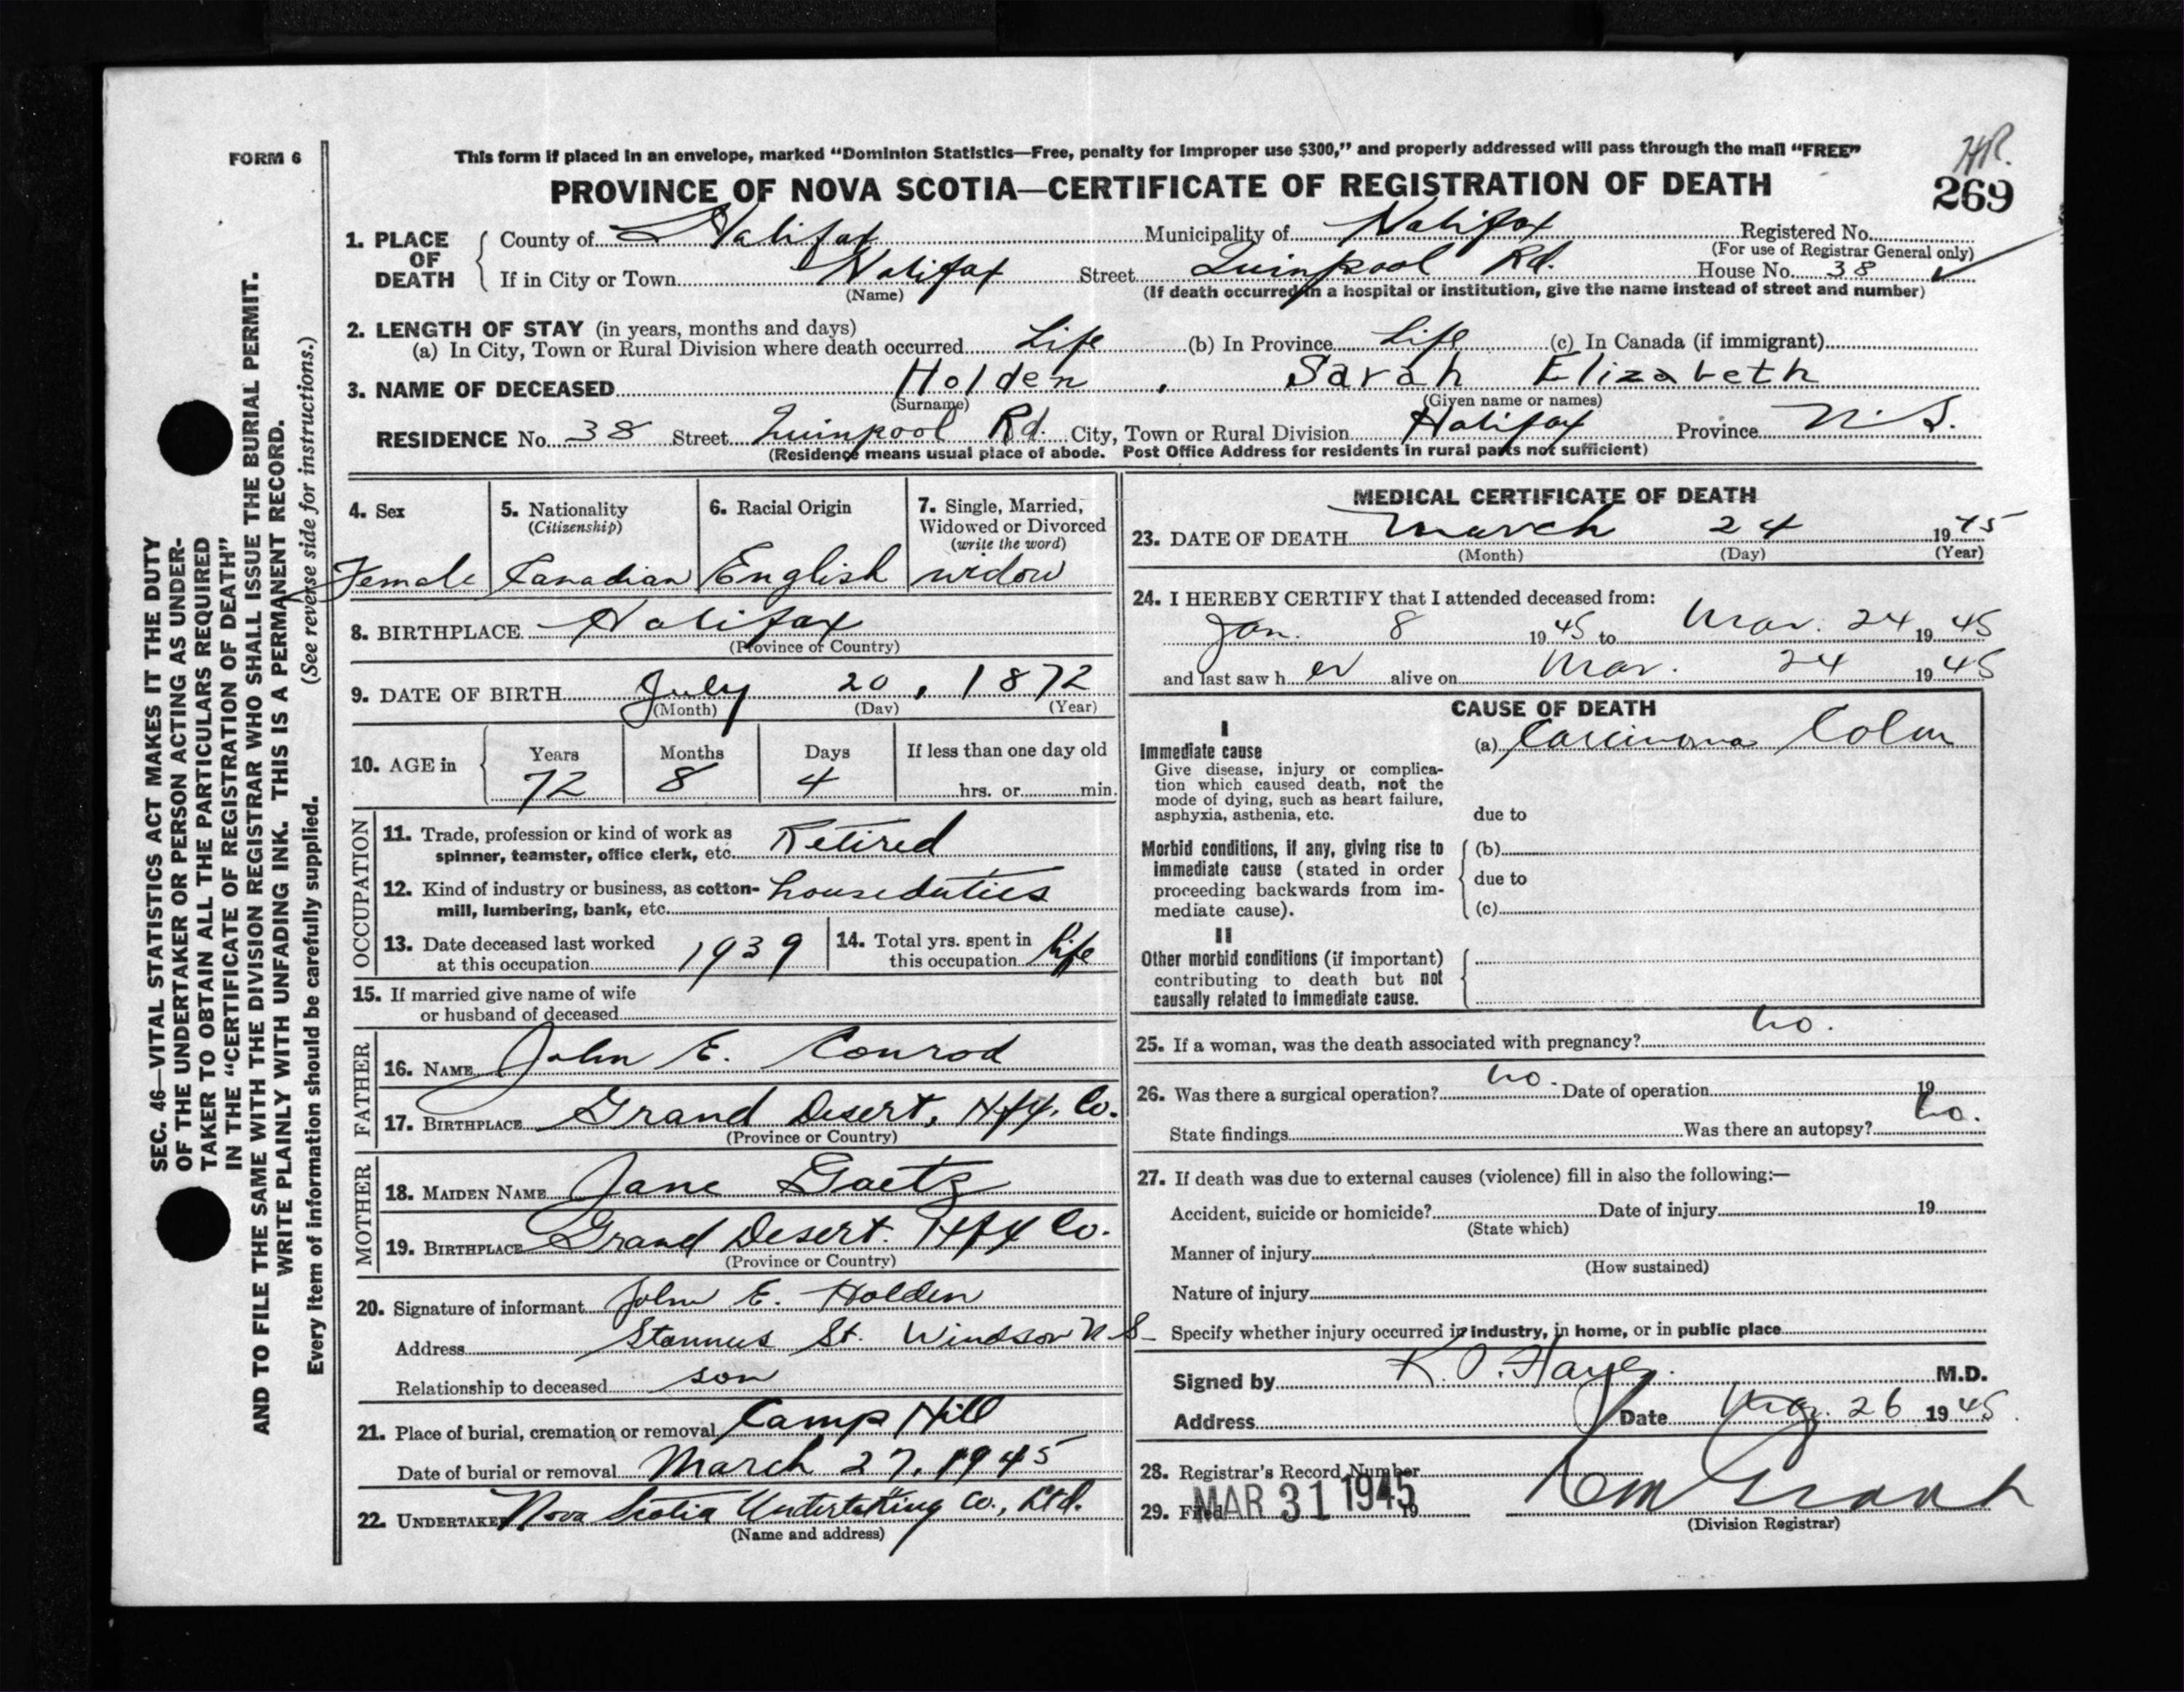 FORM 6
This form if placed in an envelope, marked “Dominion Statistics—Free, penalty for improper use $300,” and properly addressed will pass through the mail “FREE”
HR.
PROVINCE OF NOVA SCOTIA—CERTIFICATE OF REGISTRATION OF DEATH
269
1. PLACE OF DEATH
County of Halifax Municipality of Halifax Registered No.
(For use of Registrar General only)
If in City or Town Halifax Street Quinpool Rd. House No. 38
(Name) (If death occurred in a hospital or institution, give the name instead of street and number)
2. LENGTH OF STAY (in years, months and days)
(a) In City, Town or Rural Division where death occurred Life (b) In Province Life (c) In Canada (if immigrant)
3. NAME OF DECEASED Holden, Sarah Elizabeth
(Surname) (Given name or names)
RESIDENCE No. 38 Street Quinpool Rd. City, Town or Rural Division Halifax Province N.S.
(Residence means usual place of abode. Post Office Address for residents in rural parts not sufficient)
4. Sex
Female
5. Nationality
(Citizenship)
Canadian
6. Racial Origin
English
7. Single, Married,
Widowed or Divorced
(write the word)
widow
8. BIRTHPLACE Halifax
(Province or Country)
9. DATE OF BIRTH July 20, 1872
(Month) (Day) (Year)
10. AGE in
Years Months Days If less than one day old
72 8 4 hrs. or min.
OCCUPATION
11. Trade, profession or kind of work as
spinner, teamster, office clerk, etc. Retired
12. Kind of industry or business, as cotton-
mill, lumbering, bank, etc. houseduties
13. Date deceased last worked
at this occupation 1939
14. Total yrs. spent in
this occupation life
15. If married give name of wife
or husband of deceased
FATHER
16. NAME John E. Conrod
17. BIRTHPLACE Grand Desert, Hfx. Co.
(Province or Country)
MOTHER
18. MAIDEN NAME Jane Gaetz
19. BIRTHPLACE Grand Desert. Hfx Co.
(Province or Country)
20. Signature of informant John E. Holden
Address Stannus St. Windsor N.S
Relationship to deceased son
21. Place of burial, cremation or removal Camp Hill
Date of burial or removal March 27, 1945
22. UNDERTAKER Nova Scotia Undertaking Co., Ltd.
(Name and address)
MEDICAL CERTIFICATE OF DEATH
23. DATE OF DEATH March 24 1945
(Month) (Day) (Year)
24. I HEREBY CERTIFY that I attended deceased from:
Jan. 8 1945 to Mar. 24 1945
and last saw her alive on Mar. 24 1945
CAUSE OF DEATH
I
Immediate cause
Give disease, injury or complica-
tion which caused death, not the
mode of dying, such as heart failure,
asphyxia, asthenia, etc.
(a) Carcinoma Colon
due to
Morbid conditions, if any, giving rise to
immediate cause (stated in order
proceeding backwards from im-
mediate cause).
(b)
due to
(c)
II
Other morbid conditions (if important)
contributing to death but not
causally related to immediate cause.
25. If a woman, was the death associated with pregnancy? no.
26. Was there a surgical operation? no. Date of operation 19
State findings Was there an autopsy? no.
27. If death was due to external causes (violence) fill in also the following:—
Accident, suicide or homicide? Date of injury 19
(State which)
Manner of injury
(How sustained)
Nature of injury
Specify whether injury occurred in industry, in home, or in public place
Signed by K. O. Hayes. M.D.
Address Date Mar. 26 1945.
28. Registrar's Record Number
29. Filed MAR 31 1945 19
(Division Registrar)
SEC. 46—VITAL STATISTICS ACT MAKES IT THE DUTY
OF THE UNDERTAKER OR PERSON ACTING AS UNDER-
TAKER TO OBTAIN ALL THE PARTICULARS REQUIRED
IN THE “CERTIFICATE OF REGISTRATION OF DEATH”
AND TO FILE THE SAME WITH THE DIVISION REGISTRAR WHO SHALL ISSUE THE BURIAL PERMIT.
WRITE PLAINLY WITH UNFADING INK. THIS IS A PERMANENT RECORD.
Every item of information should be carefully supplied. (See reverse side for instructions.)